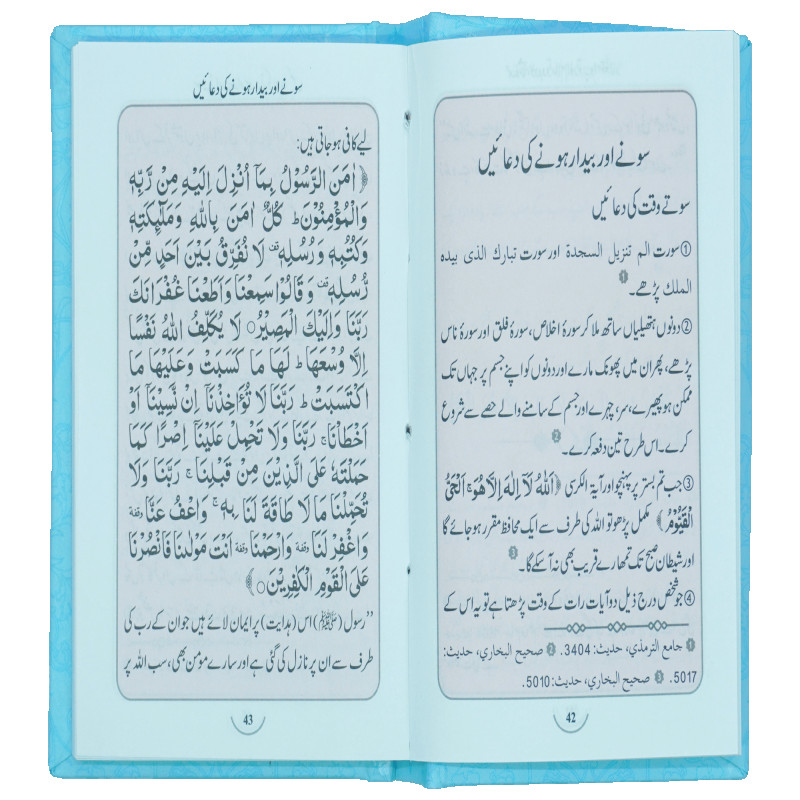 سونے اور بیدار ہونے کی دعائیں
سوتے وقت کی دعائیں
①سورت الم تنزیل السجدة اور سورت تبارك الذی بیده
الملك پڑھے۔ ❶
②دونوں ہتھیلیاں ساتھ ملا کر سورۂ اخلاص، سورۂ فلق اور سورۂ ناس
پڑھے، پھر ان میں پھونک مارے اور دونوں کو اپنے جسم پر جہاں تک
ممکن ہو پھیرے، سر، چہرے اور جسم کے سامنے والے حصے سے شروع
کرے۔ اس طرح تین دفعہ کرے۔ ❷
③جب تم بستر پر پہنچو اور آیۃ الکرسی ﴿اَللّٰهُ لَاۤ اِلٰهَ اِلَّا هُوَ ۚ اَلْحَیُّ
الْقَیُّوْمُ﴾ مکمل پڑھو تو اللہ کی طرف سے ایک محافظ مقرر ہو جائے گا
اور شیطان صبح تک تمھارے قریب بھی نہ آسکے گا۔ ❸
④جو شخص درج ذیل دو آیات رات کے وقت پڑھتا ہے تو یہ اس کے
❶ جامع الترمذي، حدیث: 3404. ❷ صحیح البخاري، حدیث:
5017. ❸ صحیح البخاري، حدیث: 5010.
42
سونے اور بیدار ہونے کی دعائیں
لیے کافی ہو جاتی ہیں:
﴿ اٰمَنَ الرَّسُوْلُ بِمَاۤ اُنْزِلَ اِلَیْهِ مِنْ رَّبِّهٖ
وَالْمُؤْمِنُوْنَ ؕ كُلٌّ اٰمَنَ بِاللّٰهِ وَمَلٰٓىِٕكَتِهٖ
وَكُتُبِهٖ وَرُسُلِهٖ ۫ لَا نُفَرِّقُ بَیْنَ اَحَدٍ مِّنْ
رُّسُلِهٖ ۫ وَقَالُوْا سَمِعْنَا وَاَطَعْنَا غُفْرَانَكَ
رَبَّنَا وَاِلَیْكَ الْمَصِیْرُ○ لَا یُكَلِّفُ اللّٰهُ نَفْسًا
اِلَّا وُسْعَهَا ؕ لَهَا مَا كَسَبَتْ وَعَلَیْهَا مَا
اكْتَسَبَتْ ؕ رَبَّنَا لَا تُؤَاخِذْنَاۤ اِنْ نَّسِیْنَاۤ اَوْ
اَخْطَاْنَا ۚ رَبَّنَا وَلَا تَحْمِلْ عَلَیْنَاۤ اِصْرًا كَمَا
حَمَلْتَهٗ عَلَی الَّذِیْنَ مِنْ قَبْلِنَا ۚ رَبَّنَا وَلَا
تُحَمِّلْنَا مَا لَا طَاقَةَ لَنَا بِهٖ ۚ وَاعْفُ عَنَّا وقفة
وَاغْفِرْ لَنَا وقفة وَارْحَمْنَا وقفة اَنْتَ مَوْلٰىنَا فَانْصُرْنَا
عَلَی الْقَوْمِ الْكٰفِرِیْنَ○﴾
”رسول (ﷺ) اس (ہدایت) پر ایمان لائے ہیں جو ان کے رب کی
طرف سے ان پر نازل کی گئی ہے اور سارے مومن بھی، سب اللہ پر
43